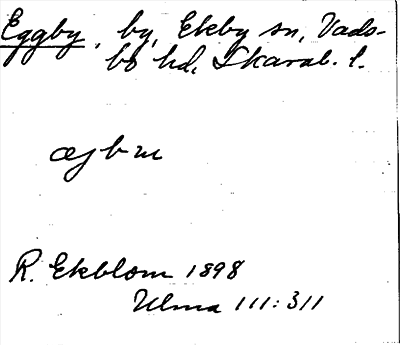 Eggby, by, Ekby sn, Vads-
bo hd, Skarab. l.
æjbm
R. Ekblom 1898
Ulma 111:311